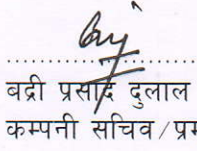 बद्री प्रसाद दुलाल
कम्पनी सचिव/प्रम